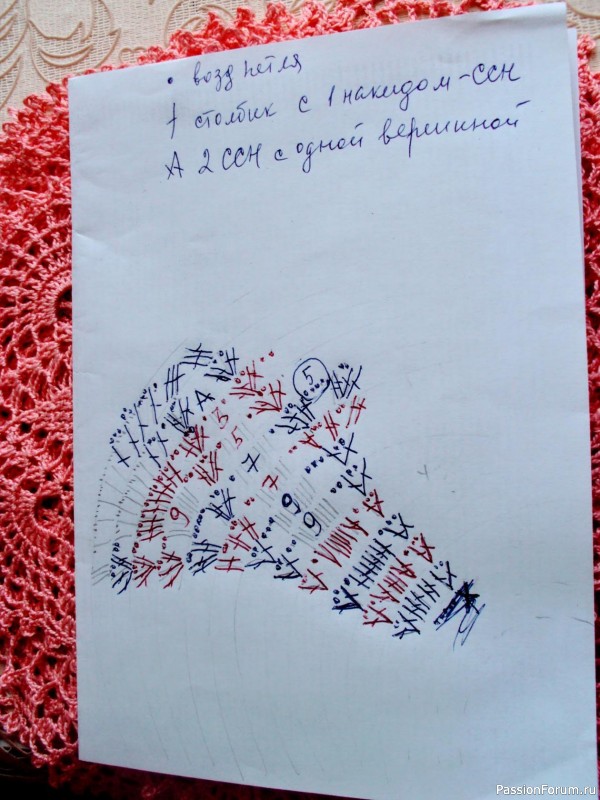 • возд петля
† столбик с 1 накидом - ССН
А 2 ССН с одной вершиной
5
3
5
7
7
9
9
9
PassionForum.ru